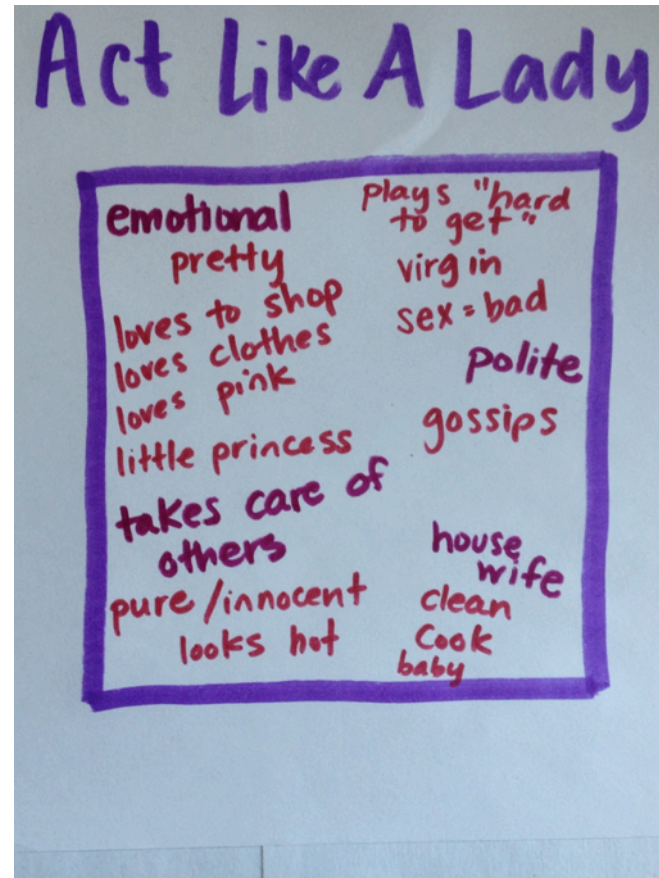 Act Like A Lady
emotional
pretty
loves to shop
loves clothes
loves pink
little princess
takes care of
others
pure/innocent
looks hot
plays "hard
to get"
virgin
sex = bad
polite
gossips
house
wife
clean
cook
baby